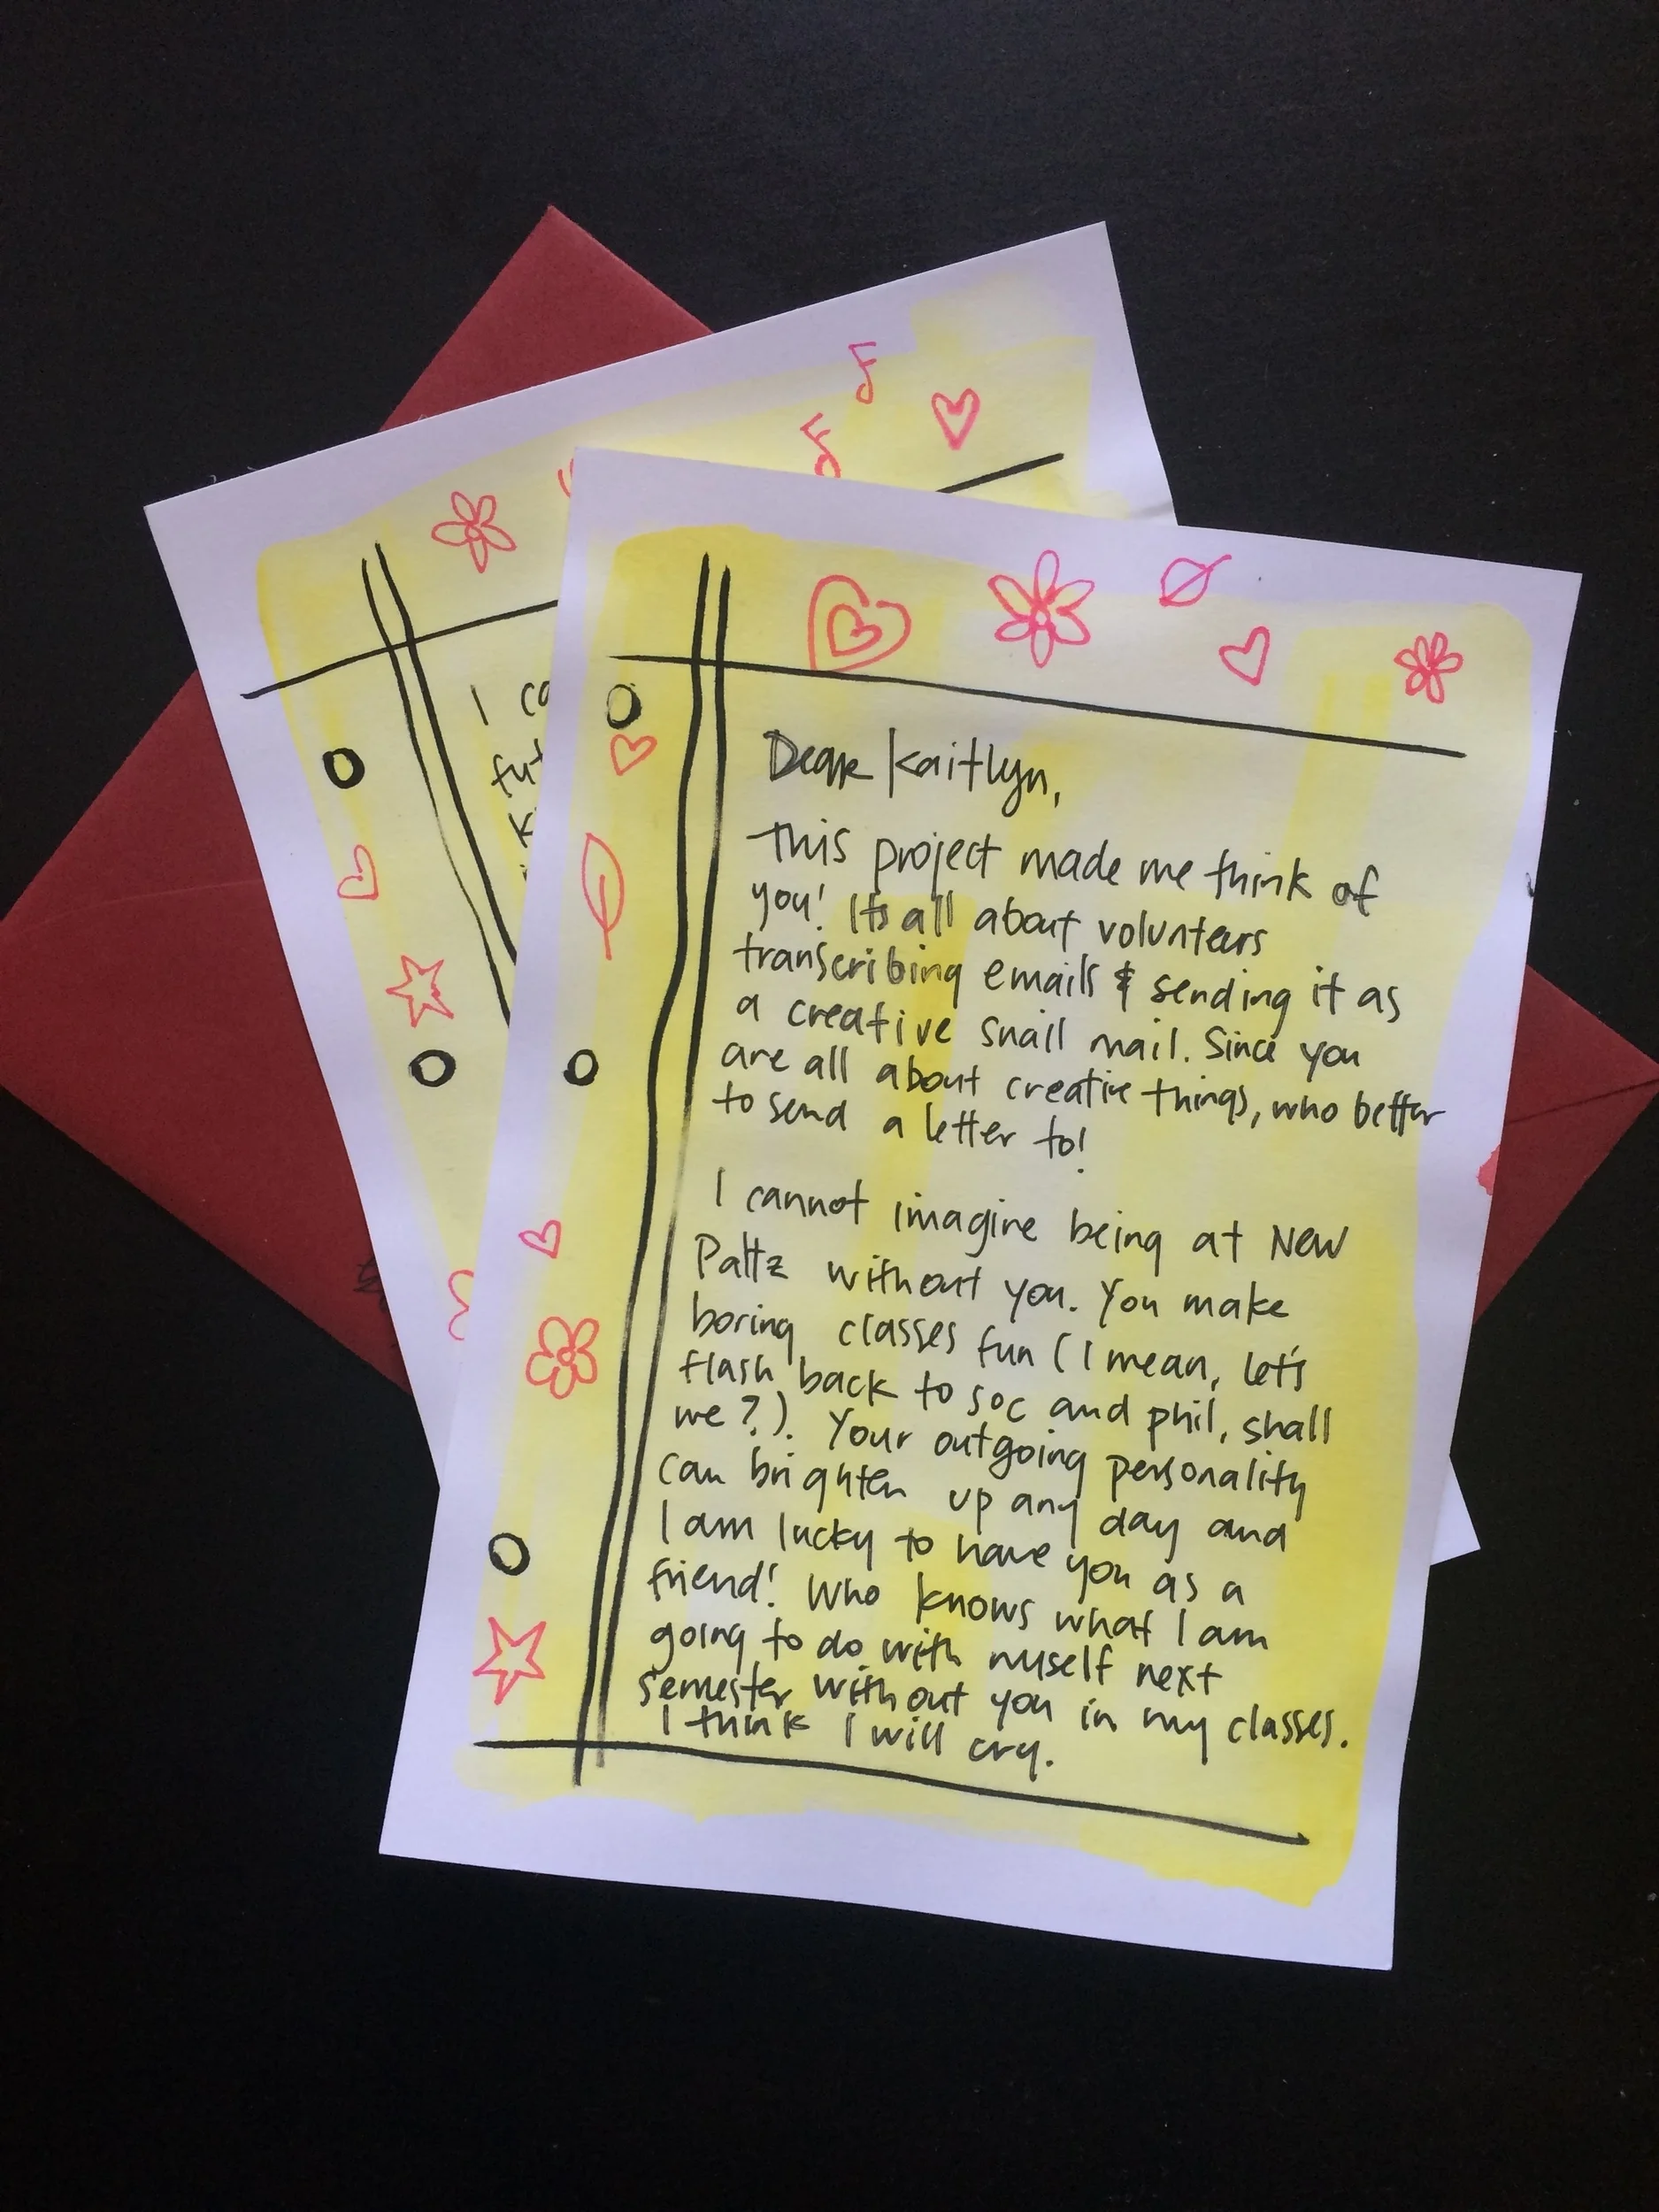 I
Dear Kaitlyn,
This project made me think of
you! Its all about volunteers
transcribing emails & sending it as
a creative snail mail. Since you
are all about creative things, who better
to send a letter to!
I cannot imagine being at New
Paltz without you. You make
boring classes fun (I mean, let's
flash back to soc and phil, shall
we?). Your outgoing personality
can brighten up any day and
I am lucky to have you as a
friend! Who knows what I am
going to do with myself next
semester without you in my classes.
I think I will cry.